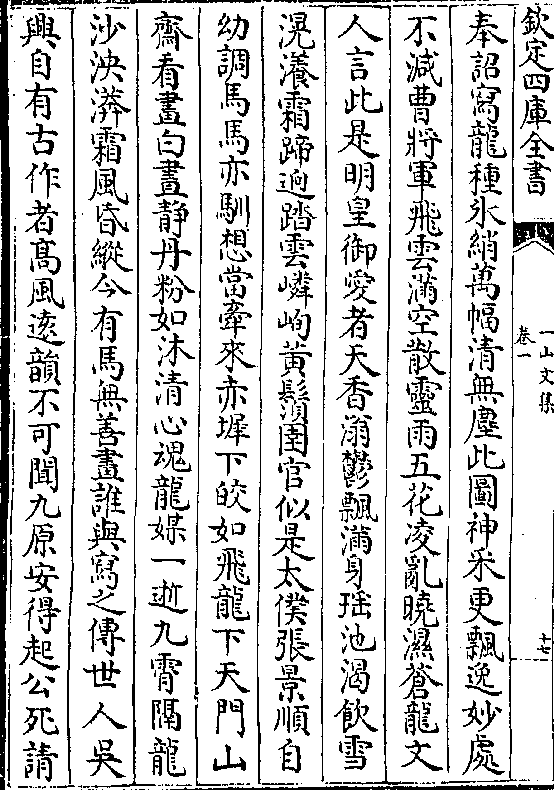 欽定四庫全書
一山文集
卷一
十七
奉詔寫龍種氷綃萬幅清無塵此圖神采更飄逸妙處
不減曹將軍飛雲滿空散靈雨五花凌亂曉濕蒼龍文
人言此是明皇御愛者天香滃鬱飄滿身瑶池渴飲雪
滉瀁霜蹄逈踏雲嶙峋黄鬚圉官似是太僕張景順自
幼調馬馬亦馴想當牽來赤墀下皎如飛龍下天門山
齋看畫白晝静丹粉如沐清心魂龍媒一逝九霄隔龍
沙泱漭霜風昏縱今有馬無善畫誰與寫之傳世人吳
興自有古作者髙風逺韻不可聞九原安得起公死請